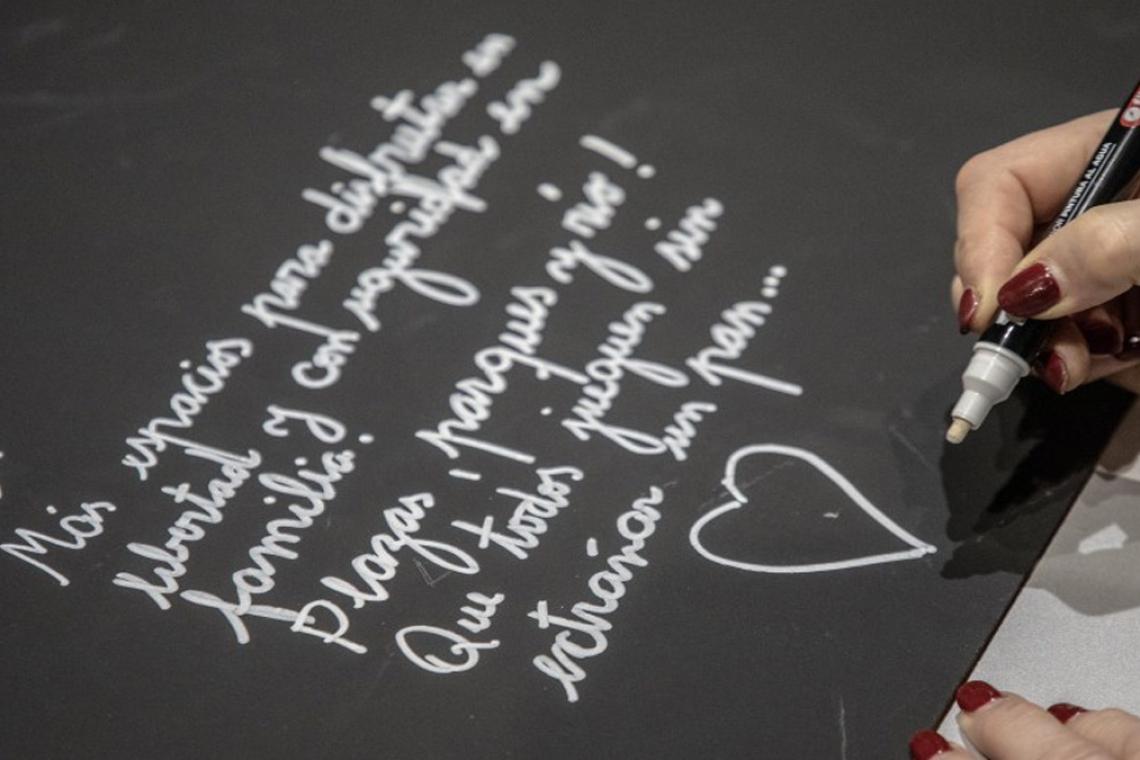 Más espacios para disfrutar en
libertad y con seguridad en
familia.
Plazas, parques y rio!
Que todos jueguen sin
extrañar un pan...
PINTURA AL AGUA